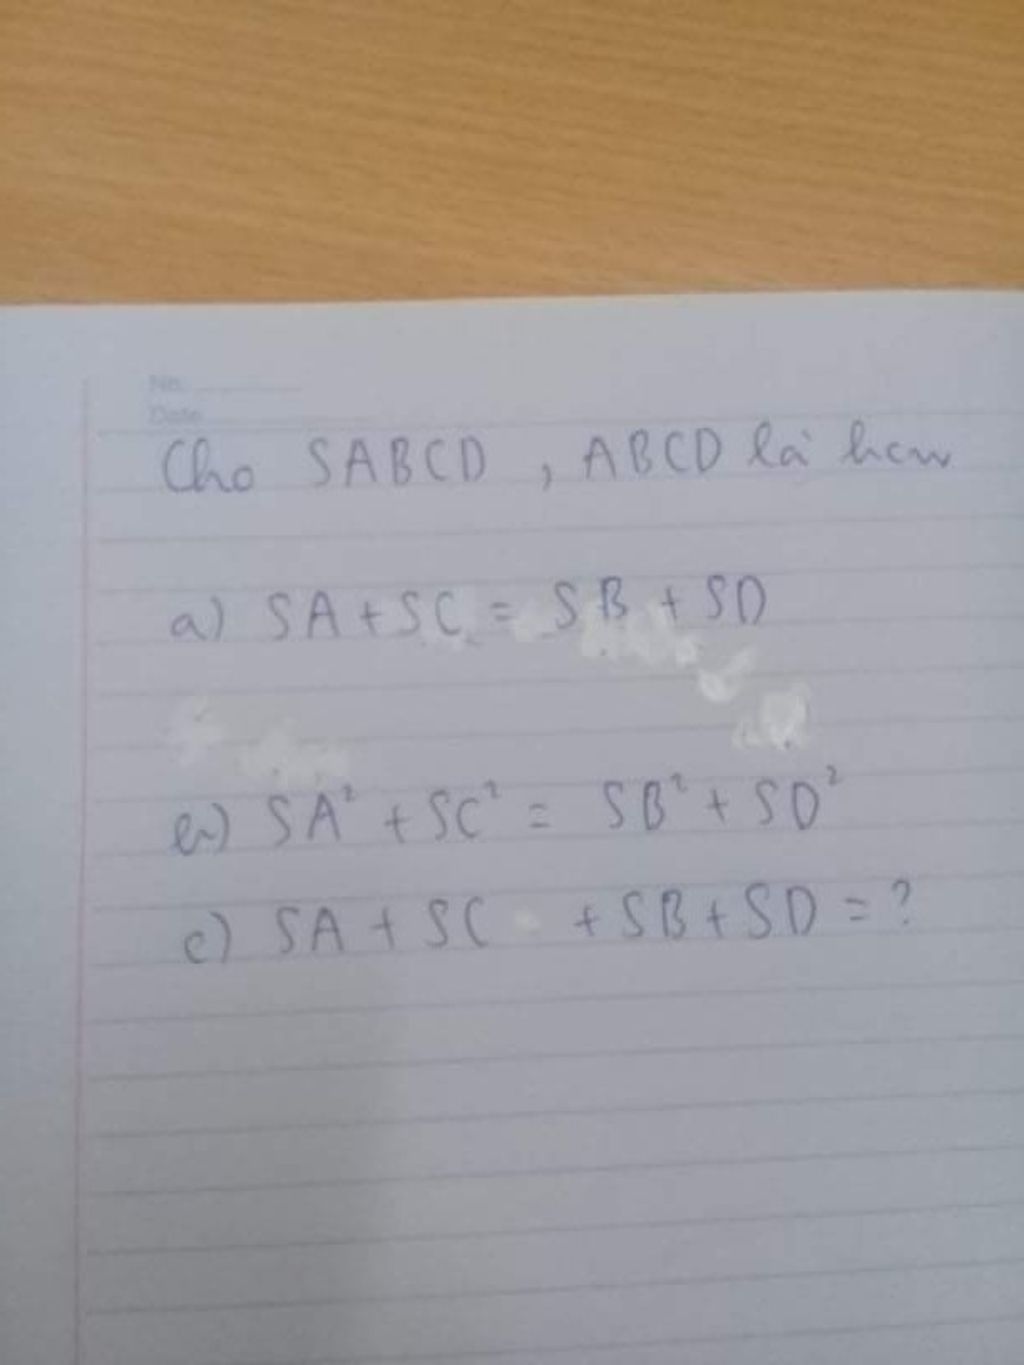 No.
Date
Cho SABCD , ABCD là hcn
a) SA + SC = SB + SD
b) SA² + SC² = SB² + SD²
c) SA + SC + SB + SD = ?